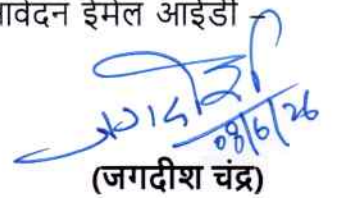 आवेदन ईमेल आईडी –
जगदीश
08/6/26
(जगदीश चंद्र)